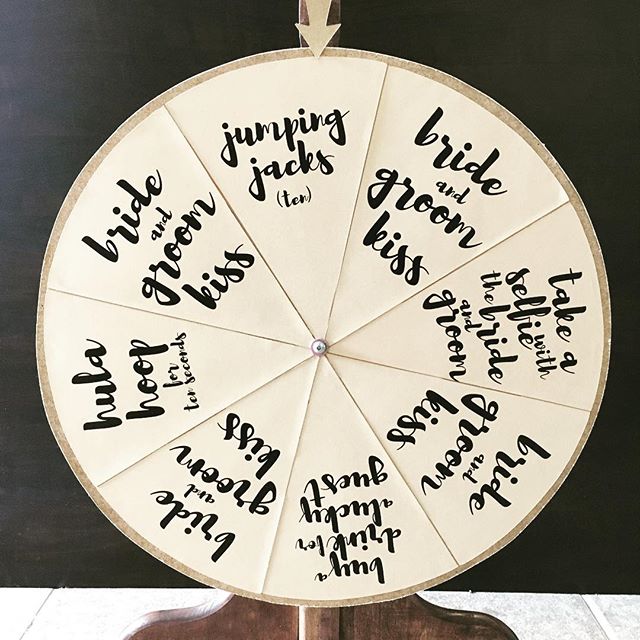 jumping
jacks
(ten)
bride
and
groom
kiss
take a
selfie with
the bride
and
groom
bride
and
groom
kiss
buy a
drink for
a lucky
guest
bride
and
groom
kiss
hula
hoop
for
ten seconds
bride
and
groom
kiss